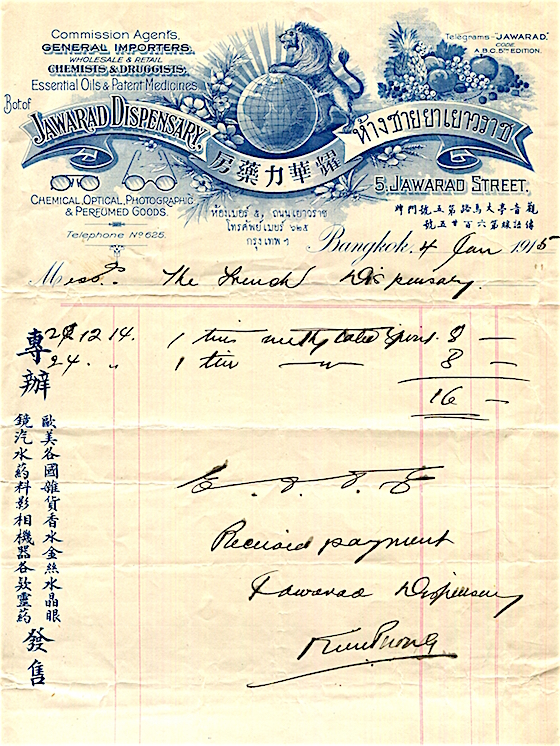 Commission Agents,
GENERAL IMPORTERS,
WHOLESALE & RETAIL
CHEMISTS & DRUGGISTS,
Essential Oils & Patent Medicines
Telegrams-"JAWARAD."
CODE
A.B.C. 5TH EDITION.
Bot. of
JAWARAD DISPENSARY,
房藥力華耀
ห้างขายยาเยาวราช
5, JAWARAD STREET,
CHEMICAL, OPTICAL, PHOTOGRAPHIC
& PERFUMED GOODS.
Telephone No 625.
ห้องเบอร์ ๕, ถนนเยาวราช
โทรศัพย์เบอร์ ๖๒๕
กรุงเทพฯ
觀音亭大馬路第五號門牌
傳話線第六百廿五號
Bangkok, 4 Jan 1915
Messrs The French Dispensary.
12 14. 1 tin methylated spirit. 8 —
24. " 1 tin — " — 8 —
16 —
E. & O. E
Received payment
Jawarad Dispensary
專辦
歐美各國雜貨香水金絲水晶眼
鏡汽水藥料影相機器各欵靈藥
發售